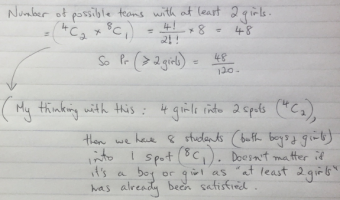 Number of possible teams with at least 2 girls.
= (⁴C₂ × ⁸C₁) = 4!/2!1! * 8 = 48
So Pr (≥2 girls) = 48/120.
(My thinking with this: 4 girls into 2 spots (⁴C₂),
then we have 8 students (both boys & girls)
into 1 spot (⁸C₁). Doesn't matter if
it's a boy or girl as "at least 2 girls"
was already been satisfied.